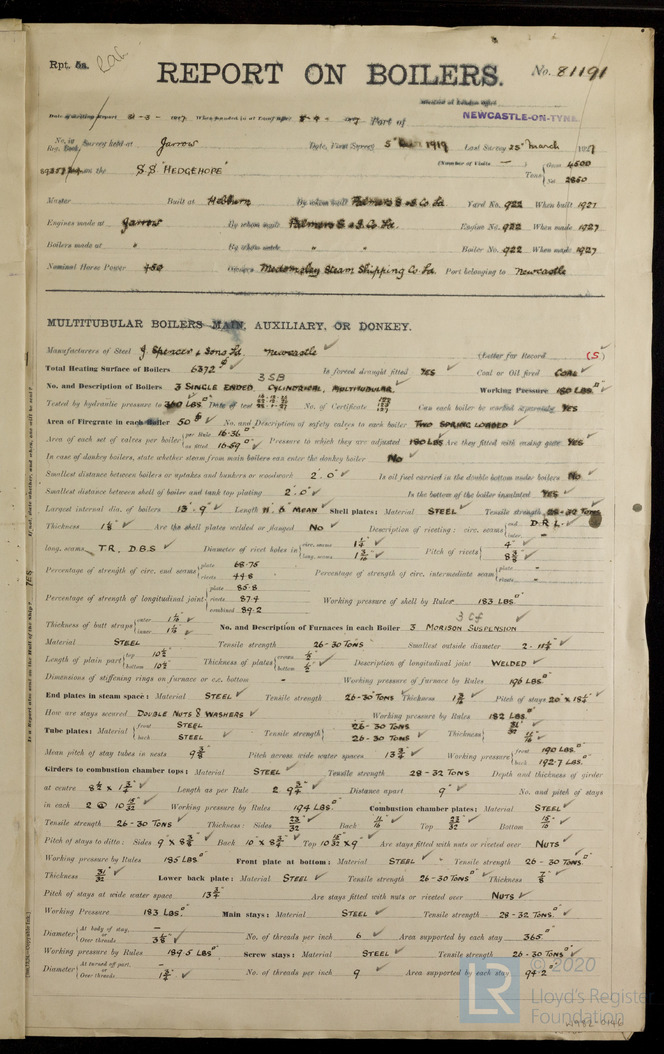 Rpt. 5a.
REPORT ON BOILERS.
No. 81191
Received at London Office
Date of writing Report 31-3-1927 When handed in at Local Office 8-4-27 Port of NEWCASTLE-ON-TYNE
No. in Reg. Book Survey held at Jarrow Date, First Survey 5th 1919 Last Survey 25th March 1927
on the S.S. "HEDGEHOPE" (Number of Visits —) Tons Gross 4500 Net 2860
Master Built at Hebburn By whom built Palmers S & I. Co. Ld. Yard No. 922 When built 1927
Engines made at Jarrow By whom made Palmers S & I. Co. Ld. Engine No. 922 When made 1927
Boilers made at " By whom made " " Boiler No. 922 When made 1927
Nominal Horse Power 450 Owners Medomsley Steam Shipping Co. Ld. Port belonging to Newcastle
MULTITUBULAR BOILERS MAIN, AUXILIARY, OR DONKEY.
Manufacturers of Steel J. Spencer & Sons Ld. Newcastle (Letter for Record (S)
Total Heating Surface of Boilers 6372 Is forced draught fitted YES Coal or Oil fired COAL
3 SB
No. and Description of Boilers 3 SINGLE ENDED CYLINDRICAL, MULTITUBULAR Working Pressure 180 LBS.
Tested by hydraulic pressure to 360 LBS. Date of test No. of Certificate Can each boiler be worked separately YES
Area of Firegrate in each Boiler 50 No. and Description of safety valves to each boiler TWO SPRING LOADED
Area of each set of valves per boiler per Rule 16.36 as fitted 16.59 Pressure to which they are adjusted 180 LBS Are they fitted with easing gear YES
In case of donkey boilers, state whether steam from main boilers can enter the donkey boiler No
Smallest distance between boilers or uptakes and bunkers or woodwork 2'. 0" Is oil fuel carried in the double bottom under boilers No
Smallest distance between shell of boiler and tank top plating 2'. 0" Is the bottom of the boiler insulated YES
Largest internal dia. of boilers 13'. 9" Length 11'. 6" MEAN Shell plates: Material STEEL Tensile strength 28-32 TONS
Thickness 1 1/8 Are the shell plates welded or flanged No Description of riveting: circ. seams end D.R.L. inter. -
long. seams T.R. D.B.S Diameter of rivet holes in circ. seams 1 1/4 long. seams 1 3/16 Pitch of rivets 4" 8 3/8
Percentage of strength of circ. end seams plate 68.75 rivets 44.8 Percentage of strength of circ. intermediate seam plate - rivets -
Percentage of strength of longitudinal joint plate 85.8 rivets 87.4 combined 89.2 Working pressure of shell by Rules 183 LBS.
Thickness of butt straps outer inner No. and Description of Furnaces in each Boiler 3 MORISON SUSPENSION
3 Cf
Material STEEL Tensile strength 26-30 TONS Smallest outside diameter
Length of plain part top 10 1/2 bottom 10 1/2 Thickness of plates crown 1/2 bottom 1/2 Description of longitudinal joint WELDED
Dimensions of stiffening rings on furnace or c.c. bottom - Working pressure of furnace by Rules 196 LBS.
End plates in steam space: Material STEEL Tensile strength 26-30 TONS Thickness 1 3/16 Pitch of stays 20" x 18 1/4
How are stays secured DOUBLE NUTS & WASHERS Working pressure by Rules 182 LBS.
Tube plates: Material front STEEL back STEEL Tensile strength 26-30 TONS 26-30 TONS Thickness 31/32
Mean pitch of stay tubes in nests 9 3/8 Pitch across wide water spaces 13 3/4 Working pressure front 190 LBS. back 192.7 LBS.
Girders to combustion chamber tops: Material STEEL Tensile strength 28-32 TONS Depth and thickness of girder
at centre 8 1/2 x 1 3/4 Length as per Rule 2. 9 3/4 Distance apart 9" No. and pitch of stays
in each 2 @ 10 15/32 Working pressure by Rules 194 LBS. Combustion chamber plates: Material STEEL
Tensile strength 26-30 TONS Thickness: Sides 23/32 Back 11/16 Top 23/32 Bottom 15/16
Pitch of stays to ditto: Sides 9" x 8 3/8 Back 10" x 8 3/4 Top 10 15/32 x 9" Are stays fitted with nuts or riveted over NUTS
Working pressure by Rules 185 LBS Front plate at bottom: Material STEEL Tensile strength 26-30 TONS.
Thickness 31/32 Lower back plate: Material STEEL Tensile strength 26-30 TONS Thickness 7/8
Pitch of stays at wide water space 13 3/4 Are stays fitted with nuts or riveted over NUTS
Working Pressure 183 LBS. Main stays: Material STEEL Tensile strength 28-32 TONS.
Diameter At body of stay, or Over threads 3 1/8 No. of threads per inch 6 Area supported by each stay 365
Working pressure by Rules 189.5 LBS. Screw stays: Material STEEL Tensile strength 26-30 TONS
Diameter At turned off part, or Over threads 1 3/4 No. of threads per inch 9 Area supported by each stay 94.2
© 2020
LR
Lloyd's Register
Foundation
W982-0146